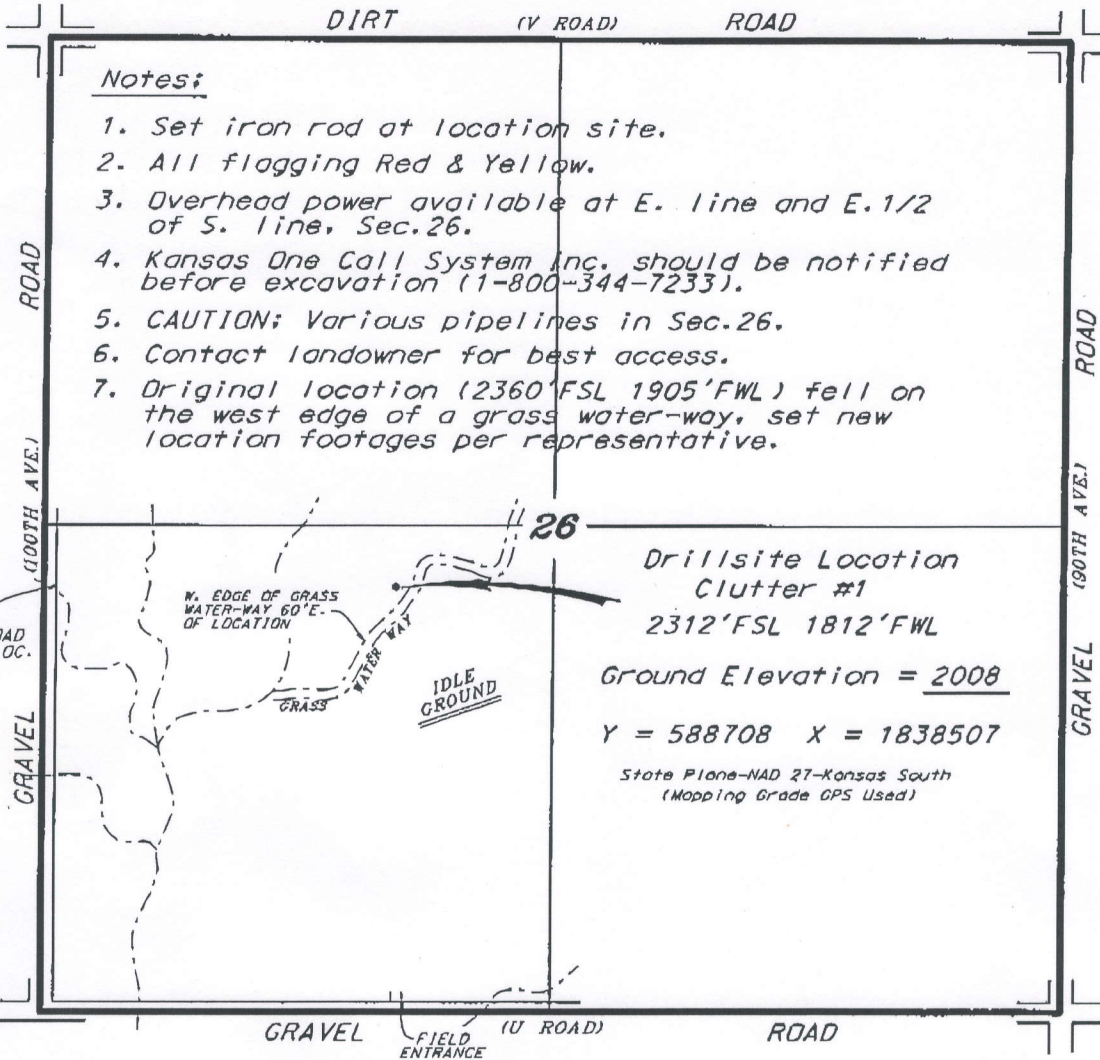 DIRT (V ROAD) ROAD
Notes:
1. Set iron rod at location site.
2. All flagging Red & Yellow.
3. Overhead power available at E. line and E.1/2
of S. line, Sec.26.
4. Kansas One Call System Inc. should be notified
before excavation (1-800-344-7233).
5. CAUTION: Various pipelines in Sec.26.
6. Contact landowner for best access.
7. Original location (2360'FSL 1905'FWL) fell on
the west edge of a grass water-way, set new
location footages per representative.
GRAVEL (100TH AVE.) ROAD
GRAVEL (90TH AVE.) ROAD
26
W. EDGE OF GRASS
WATER-WAY 60'E.
OF LOCATION
GRASS WATER WAY
IDLE
GROUND
Drillsite Location
Clutter #1
2312'FSL 1812'FWL
Ground Elevation = 2008
Y = 588708 X = 1838507
State Plane-NAD 27-Kansas South
(Mapping Grade GPS Used)
GRAVEL (U ROAD) ROAD
FIELD
ENTRANCE